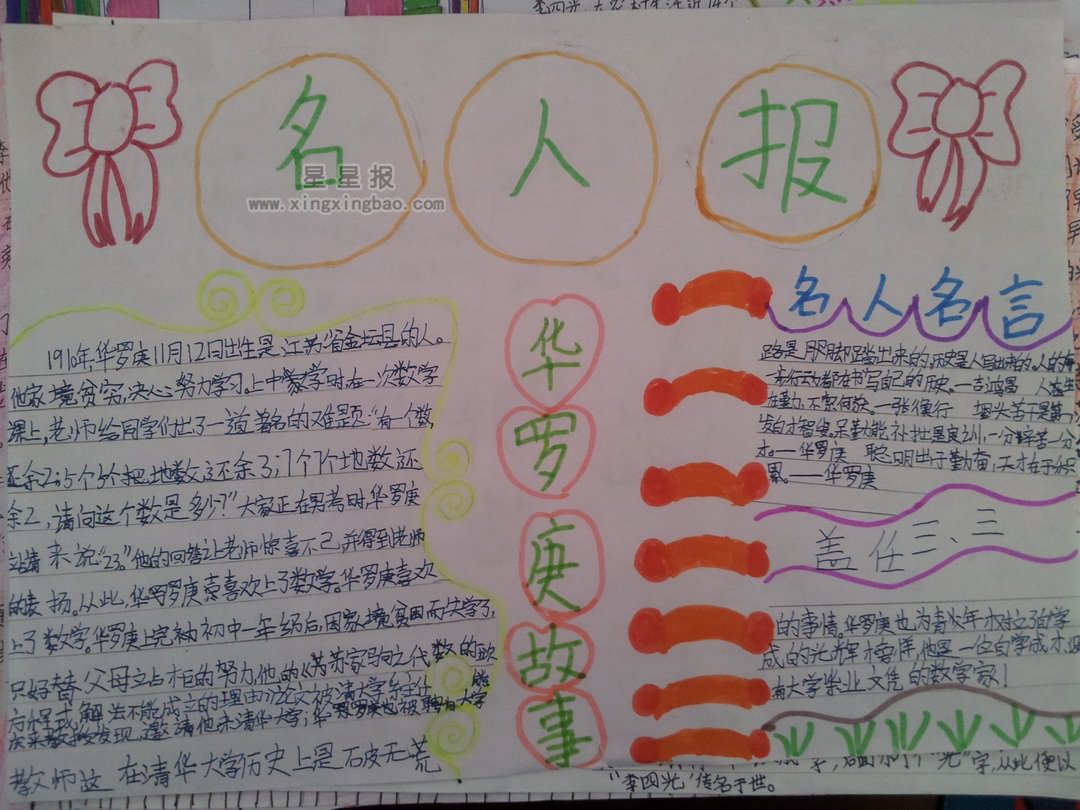 名人报
星星报
www.xingxingbao.com
1910年,华罗庚11月12日出生是江苏省金坛县的人。
他家境贫穷,决心努力学习。上中学时在一次数学
课上,老师给同学们出了一道著名的难题:“有一个数,
还余2;5个5个地数还余3;7个7个地数还
余2,请问这个数是多少?”大家正在思考时,华罗庚
站起来说“23。”他的回答让老师惊喜不已,并得到老师
的表扬。从此,华罗庚喜欢上了数学。华罗庚喜欢
上了数学。华罗庚上完初中一年级后,因家境贫困而失学了,
只好替父母站柜的努力他的《苏家驹之代数的
方程式解法不能成立的理由》论文被清大学
教授发现,邀请他来清华大学;华罗庚也被
教师这在清华大学历史上是石皮无荒
华罗庚故事
名人名言
路是脚踏出来的,历史是人写出来的。人的每
一步行动都在书写自己的历史。—吉鸿昌
—张衡 埋头苦干是第一,
发白才智叟,勤能补拙是良训,一分辛苦一分
才。—华罗庚 聪明出于勤奋,天才在于积
累。——华罗庚
三、三
的事情。华罗庚也为青少年树立了自学
成的光辉榜样,他是一位自学成才,没
有大学毕业文凭的数学家!
“李四光”传名于世。